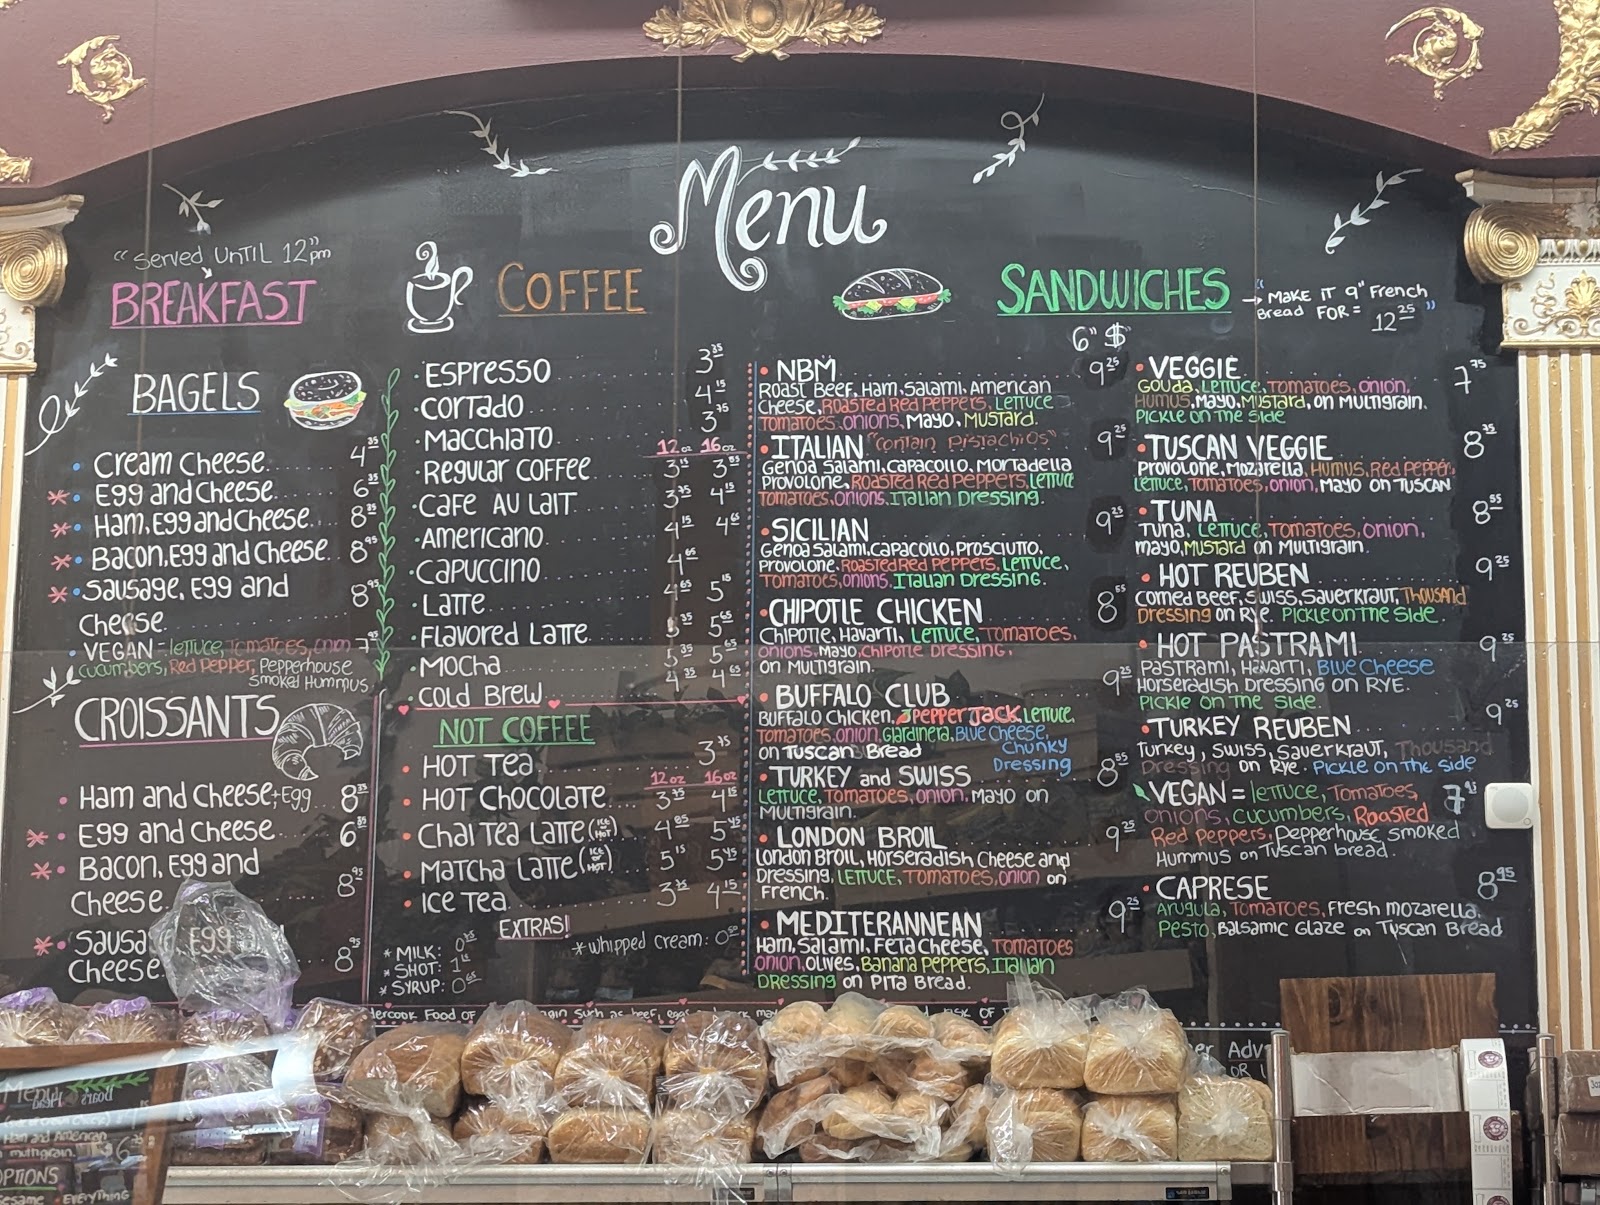 Menu
"Served UNTIL 12"pm
BREAKFAST
BAGELS
• Cream Cheese 4 35
* • Egg and Cheese 6 35
* • Ham, Egg and Cheese 8 35
* • Bacon, Egg and Cheese 8 95
* • Sausage, Egg and 8 95
Cheese
• VEGAN - Lettuce, Tomatoes, onion 7 95
cucumbers, Red Pepper, Pepperhouse
Smoked Hummus
CROISSANTS
• Ham and Cheese +Egg 8 35
* • Egg and Cheese 6 35
* • Bacon, Egg and
Cheese 8 95
* • Sausa Egg
Cheese 8 95
COFFEE
• ESPRESSO 3 35
• CORTADO 4 15
• MACCHIATO 3 75
12 oz 16 oz
• REGULAR COFFEE 3 15
• CAFE AU LAIT 3 75 4 15
• AMERICANO 4 15 4 65
• CAPUCCINO 4 65
• LATTE 4 65 5 15
• FLAVORED LATTE 5 65
• MOCHA 5 35 5 65
• COLD BREW 4 35 4 65
NOT COFFEE
• HOT TEA 3 75
12 oz 16 oz
• HOT CHOCOLATE 3 75 4 15
• CHAI TEA LATTE (ICE or HOT) 4 85 5 45
• MATCHA LATTE (ICE or HOT) 5 15 5 45
• ICE TEA 3 75 4 15
EXTRAS!
* MILK: 0
* SHOT: 1
* SYRUP: 0 65
* Whipped Cream: 0 50
SANDWICHES
→ "MAKE IT 9" French
Bread FOR = 12 25"
6" $
• NBM 9 25
ROAST BEEF, HAM, SALAMI, AMERICAN
CHEESE, ROASTED RED PEPPERS, LETTUCE
TOMATOES, ONIONS, MAYO, MUSTARD.
• ITALIAN "contain PISTACHIOS" 9 25
GENOA SALAMI, CAPACOLLO, MORTADELLA
PROVOLONE, ROASTED RED PEPPERS, LETTUCE
TOMATOES, ONIONS, ITALIAN DRESSING.
• SICILIAN 9 25
GENOA SALAMI, CAPACOLLO, PROSCIUTTO,
PROVOLONE, ROASTED RED PEPPERS, LETTUCE,
TOMATOES, ONIONS, ITALIAN DRESSING.
• CHIPOTLE CHICKEN 8 55
CHIPOTLE, HAVARTI, LETTUCE, TOMATOES,
ONIONS, MAYO, CHIPOTLE DRESSING,
ON MULTIGRAIN.
• BUFFALO CLUB 9 25
BUFFALO CHICKEN, PEPPER JACK, LETTUCE,
TOMATOES, ONION, GIARDINERA, BLUE CHEESE,
ON TUSCAN BREAD CHUNKY
DRESSING
• TURKEY and SWISS 8 55
LETTUCE, TOMATOES, ONION, MAYO ON
MULTIGRAIN.
• LONDON BROIL 9 25
LONDON BROIL, HORSERADISH CHEESE AND
DRESSING, LETTUCE, TOMATOES, ONION ON
FRENCH.
• MEDITERANNEAN 9 25
HAM, SALAMI, FETA CHEESE, TOMATOES
ONION, OLIVES, BANANA PEPPERS, ITALIAN
DRESSING ON PITA BREAD.
• VEGGIE 7 75
GOUDA, LETTUCE, TOMATOES, ONION,
HUMUS, MAYO, MUSTARD, ON MULTIGRAIN.
PICKLE ON THE SIDE
• TUSCAN VEGGIE 8 35
PROVOLONE, MOZARELLA, HUMUS, RED PEPPER,
LETTUCE, TOMATOES, ONION, MAYO ON TUSCAN
• TUNA 8 55
TUNA, LETTUCE, TOMATOES, ONION,
MAYO, MUSTARD ON MULTIGRAIN.
• HOT REUBEN 9 25
CORNED BEEF, SWISS, SAUERKRAUT, THOUSAND
DRESSING ON RYE. PICKLE ON THE SIDE.
• HOT PASTRAMI 9 25
PASTRAMI, HAVARTI, BLUE CHEESE
HORSERADISH DRESSING ON RYE.
PICKLE ON THE SIDE.
• TURKEY REUBEN 9 25
TURKEY, SWISS, SAUERKRAUT, THOUSAND
DRESSING ON RYE. PICKLE ON THE SIDE
VEGAN = LETTUCE, TOMATOES, 7
ONIONS, CUCUMBERS, ROASTED
RED PEPPERS, PEPPERHOUSE SMOKED
HUMMUS ON TUSCAN BREAD.
• CAPRESE 8 95
ARUGULA, TOMATOES, FRESH MOZARELLA,
PESTO, BALSAMIC GLAZE ON TUSCAN BREAD
dercook Food OF such as beef, eggs
Menu
Ham and American
n multigrain. 6
OPTIONS
Sesame EVERYTHING